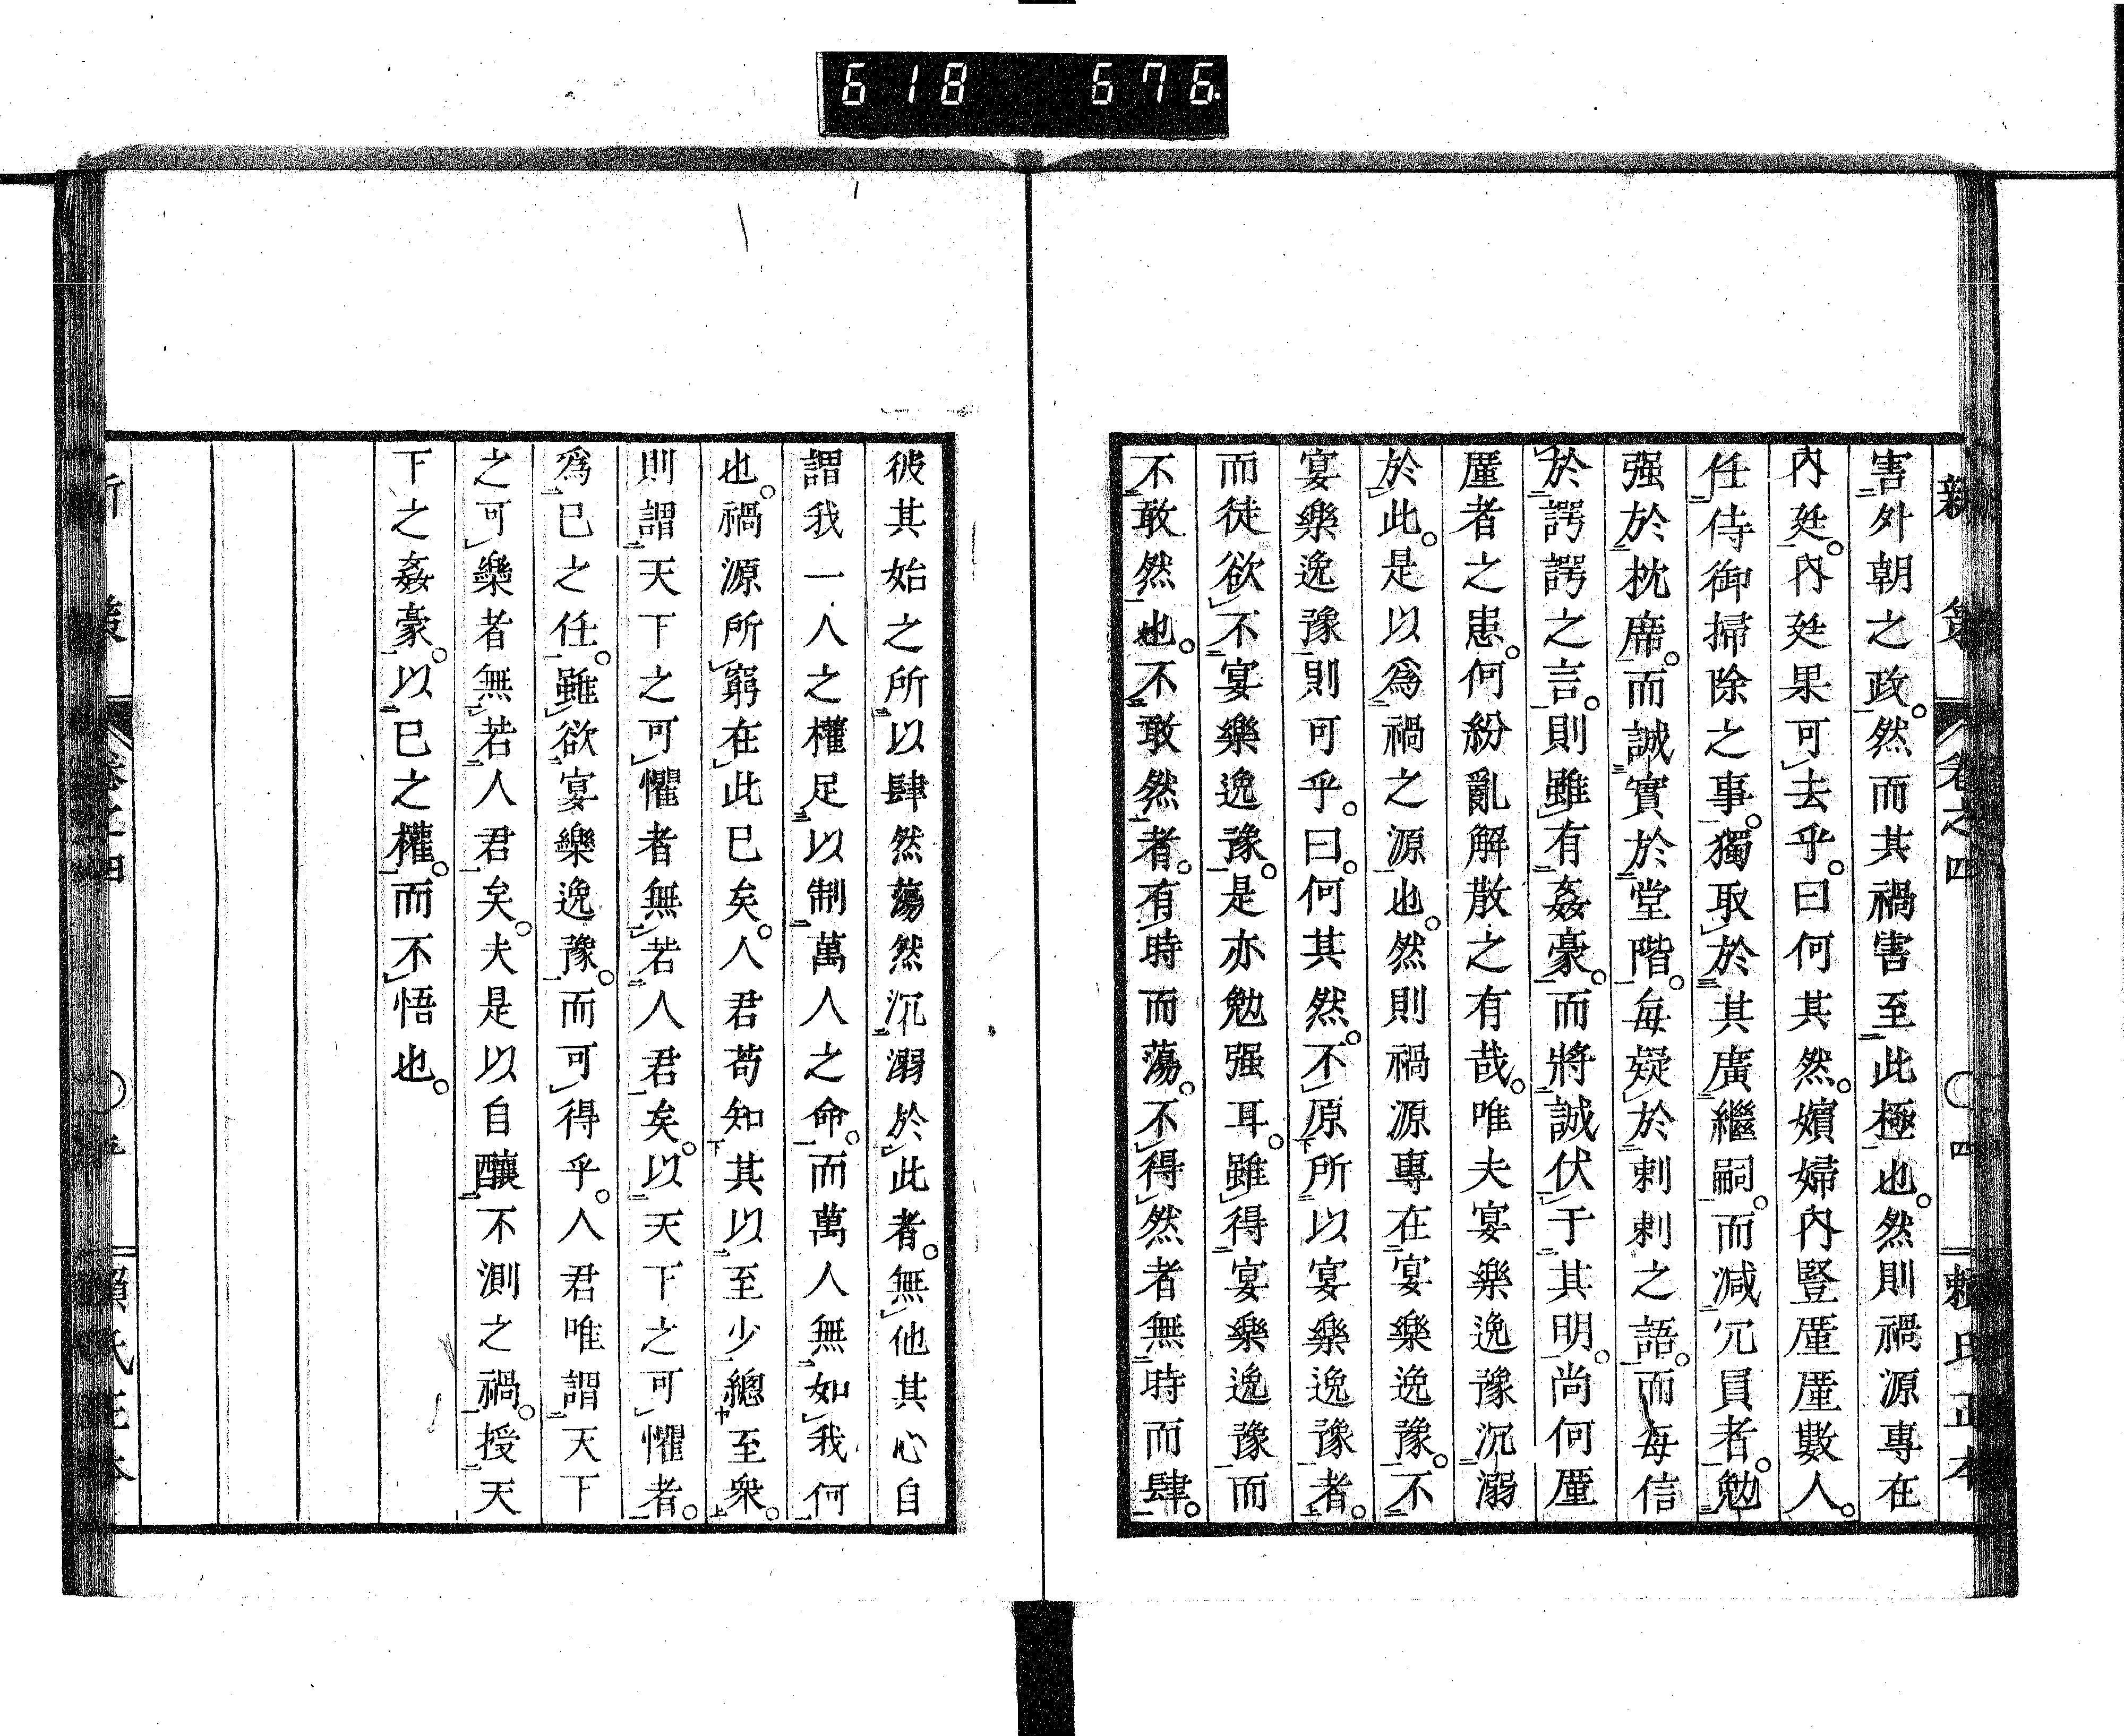 618 676
新策 卷之四 〇四 賴氏正本
害外朝之政。然而其禍害至此極也。然則禍源專在
內廷。內廷果可去乎。曰何其然。嬪婦內豎厪厪數人。
任侍御掃除之事。獨取於其廣繼嗣。而減冗員者。勉
强於枕席。而誠實於堂階。每疑於刺刺之語。而每信
於諤諤之言。則雖有姦豪。而將誠伏于其明。尚何厪
厪者之患。何紛亂解散之有哉。唯夫宴樂逸豫沉溺
於此。是以爲禍之源也。然則禍源專在宴樂逸豫。不
宴樂逸豫則可乎。曰。何其然。不原所以宴樂逸豫者。
而徒欲不宴樂逸豫。是亦勉强耳。雖得宴樂逸豫而
不敢然也。不敢然者。有時而蕩。不得然者無時而肆。
彼其始之所以肆然蕩然沉溺於此者。無他其心自
謂我一人之權足以制萬人之命。而萬人無如我何
也。禍源所窮在此已矣。人君苟知其以至少總至衆。
則謂天下之可懼者無若人君矣。以天下之可懼者。
爲己之任。雖欲宴樂逸豫。而可得乎。人君唯謂天下
之可樂者無若人君矣。夫是以自釀不測之禍。授天
下之姦豪。以己之權。而不悟也。